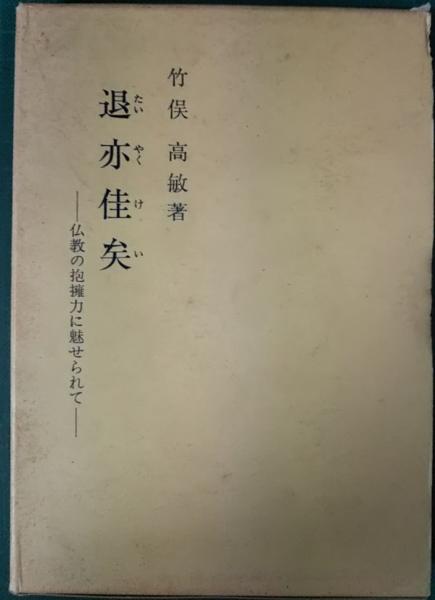 竹俣高敏著
退亦佳矣
たいやくけい
──仏教の抱擁力に魅せられて──